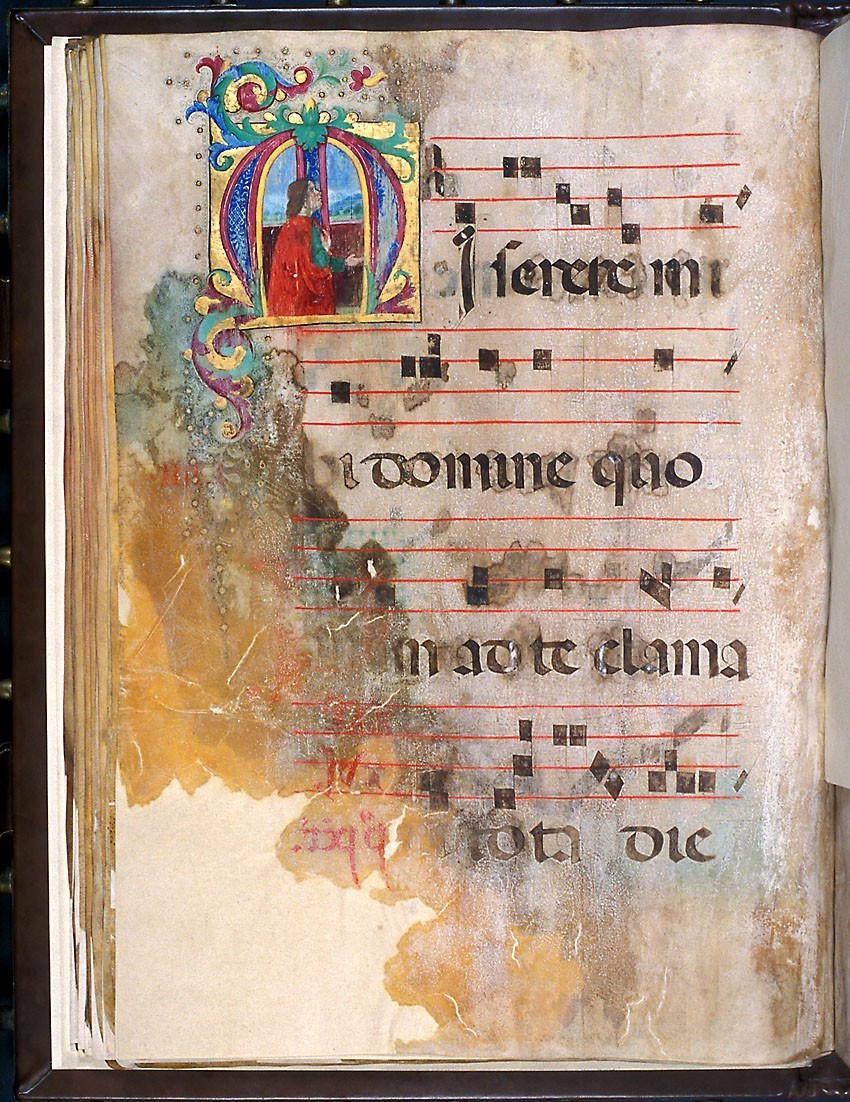 Miserere mi
hi domine quo
m ad te clama
tota die